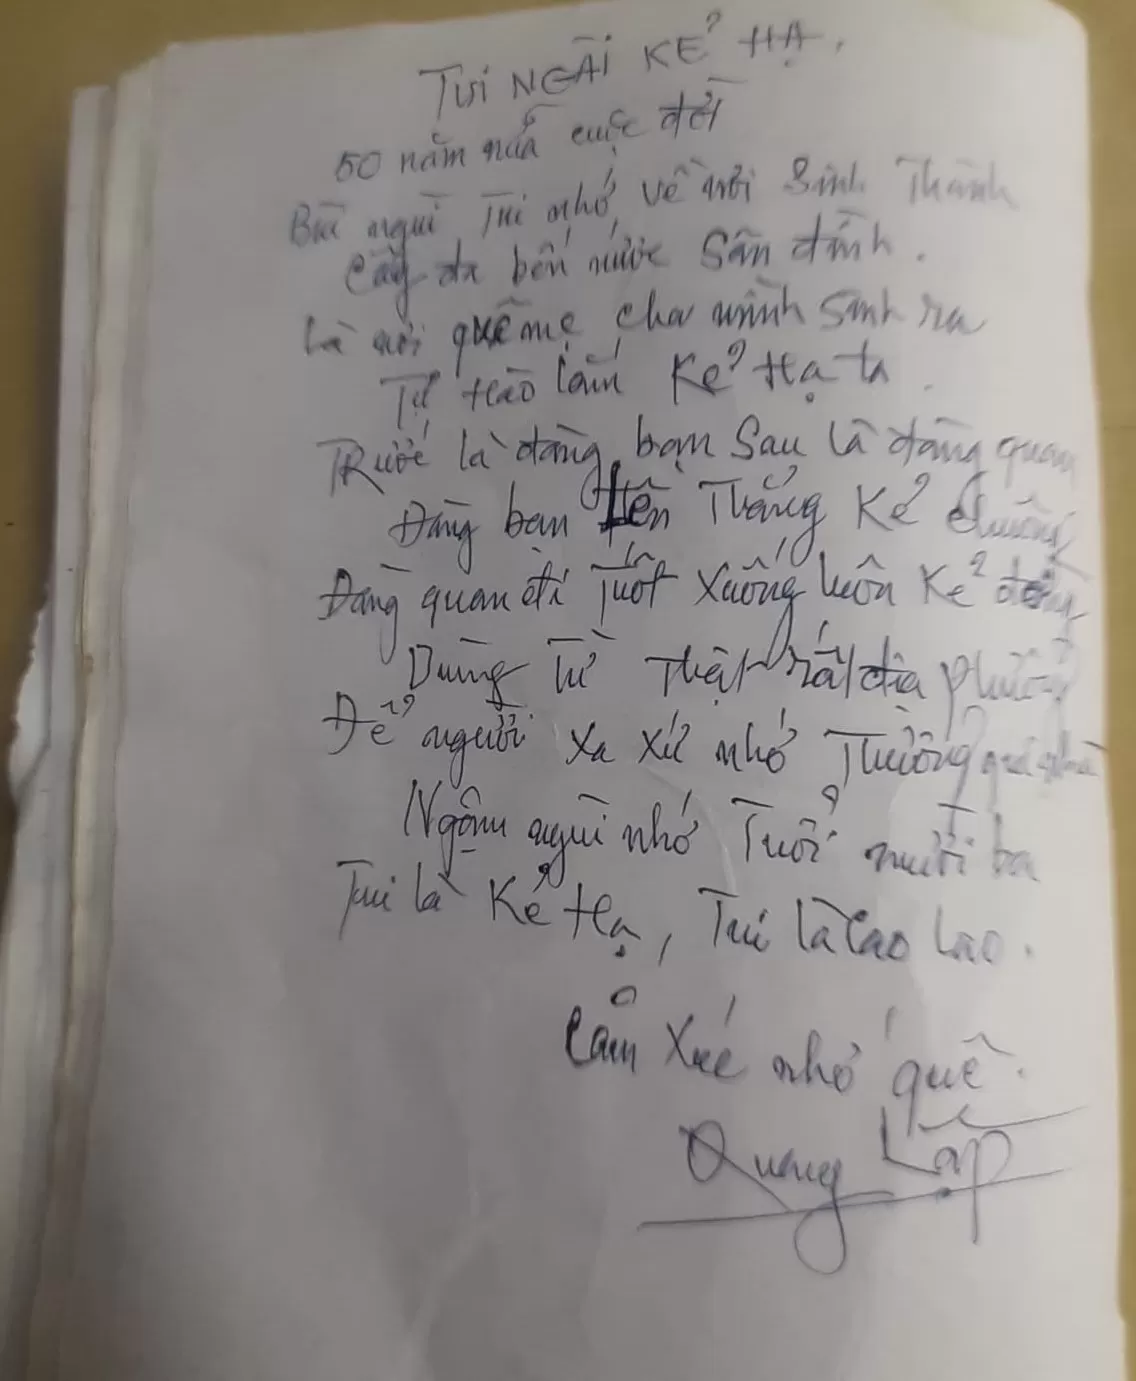 TUI NGÃI KẺ HẠ.
50 năm nữa cuộc đời
Bùi ngùi Tui nhớ về nơi Sinh Thành
Cây đa bến nước Sân đình.
Là nơi quê mẹ cha mình sinh ra
Tự Hào lắm Kẻ Hạ ta.
TRước là đàng bạn Sau là đàng quan
Đàng bạn lên Thẳng Kẻ chuông
Đàng quan đi Tuốt xuống luôn Kẻ đồng
Dùng Từ Thật rất địa phương
Để người xa xứ nhớ Thương quê nhà
Ngậm ngùi nhớ Tuổi mười ba
Tui là Kẻ Hạ, Tui là Cao Lao.
Cảm Xúc nhớ quê.
Quang Lập